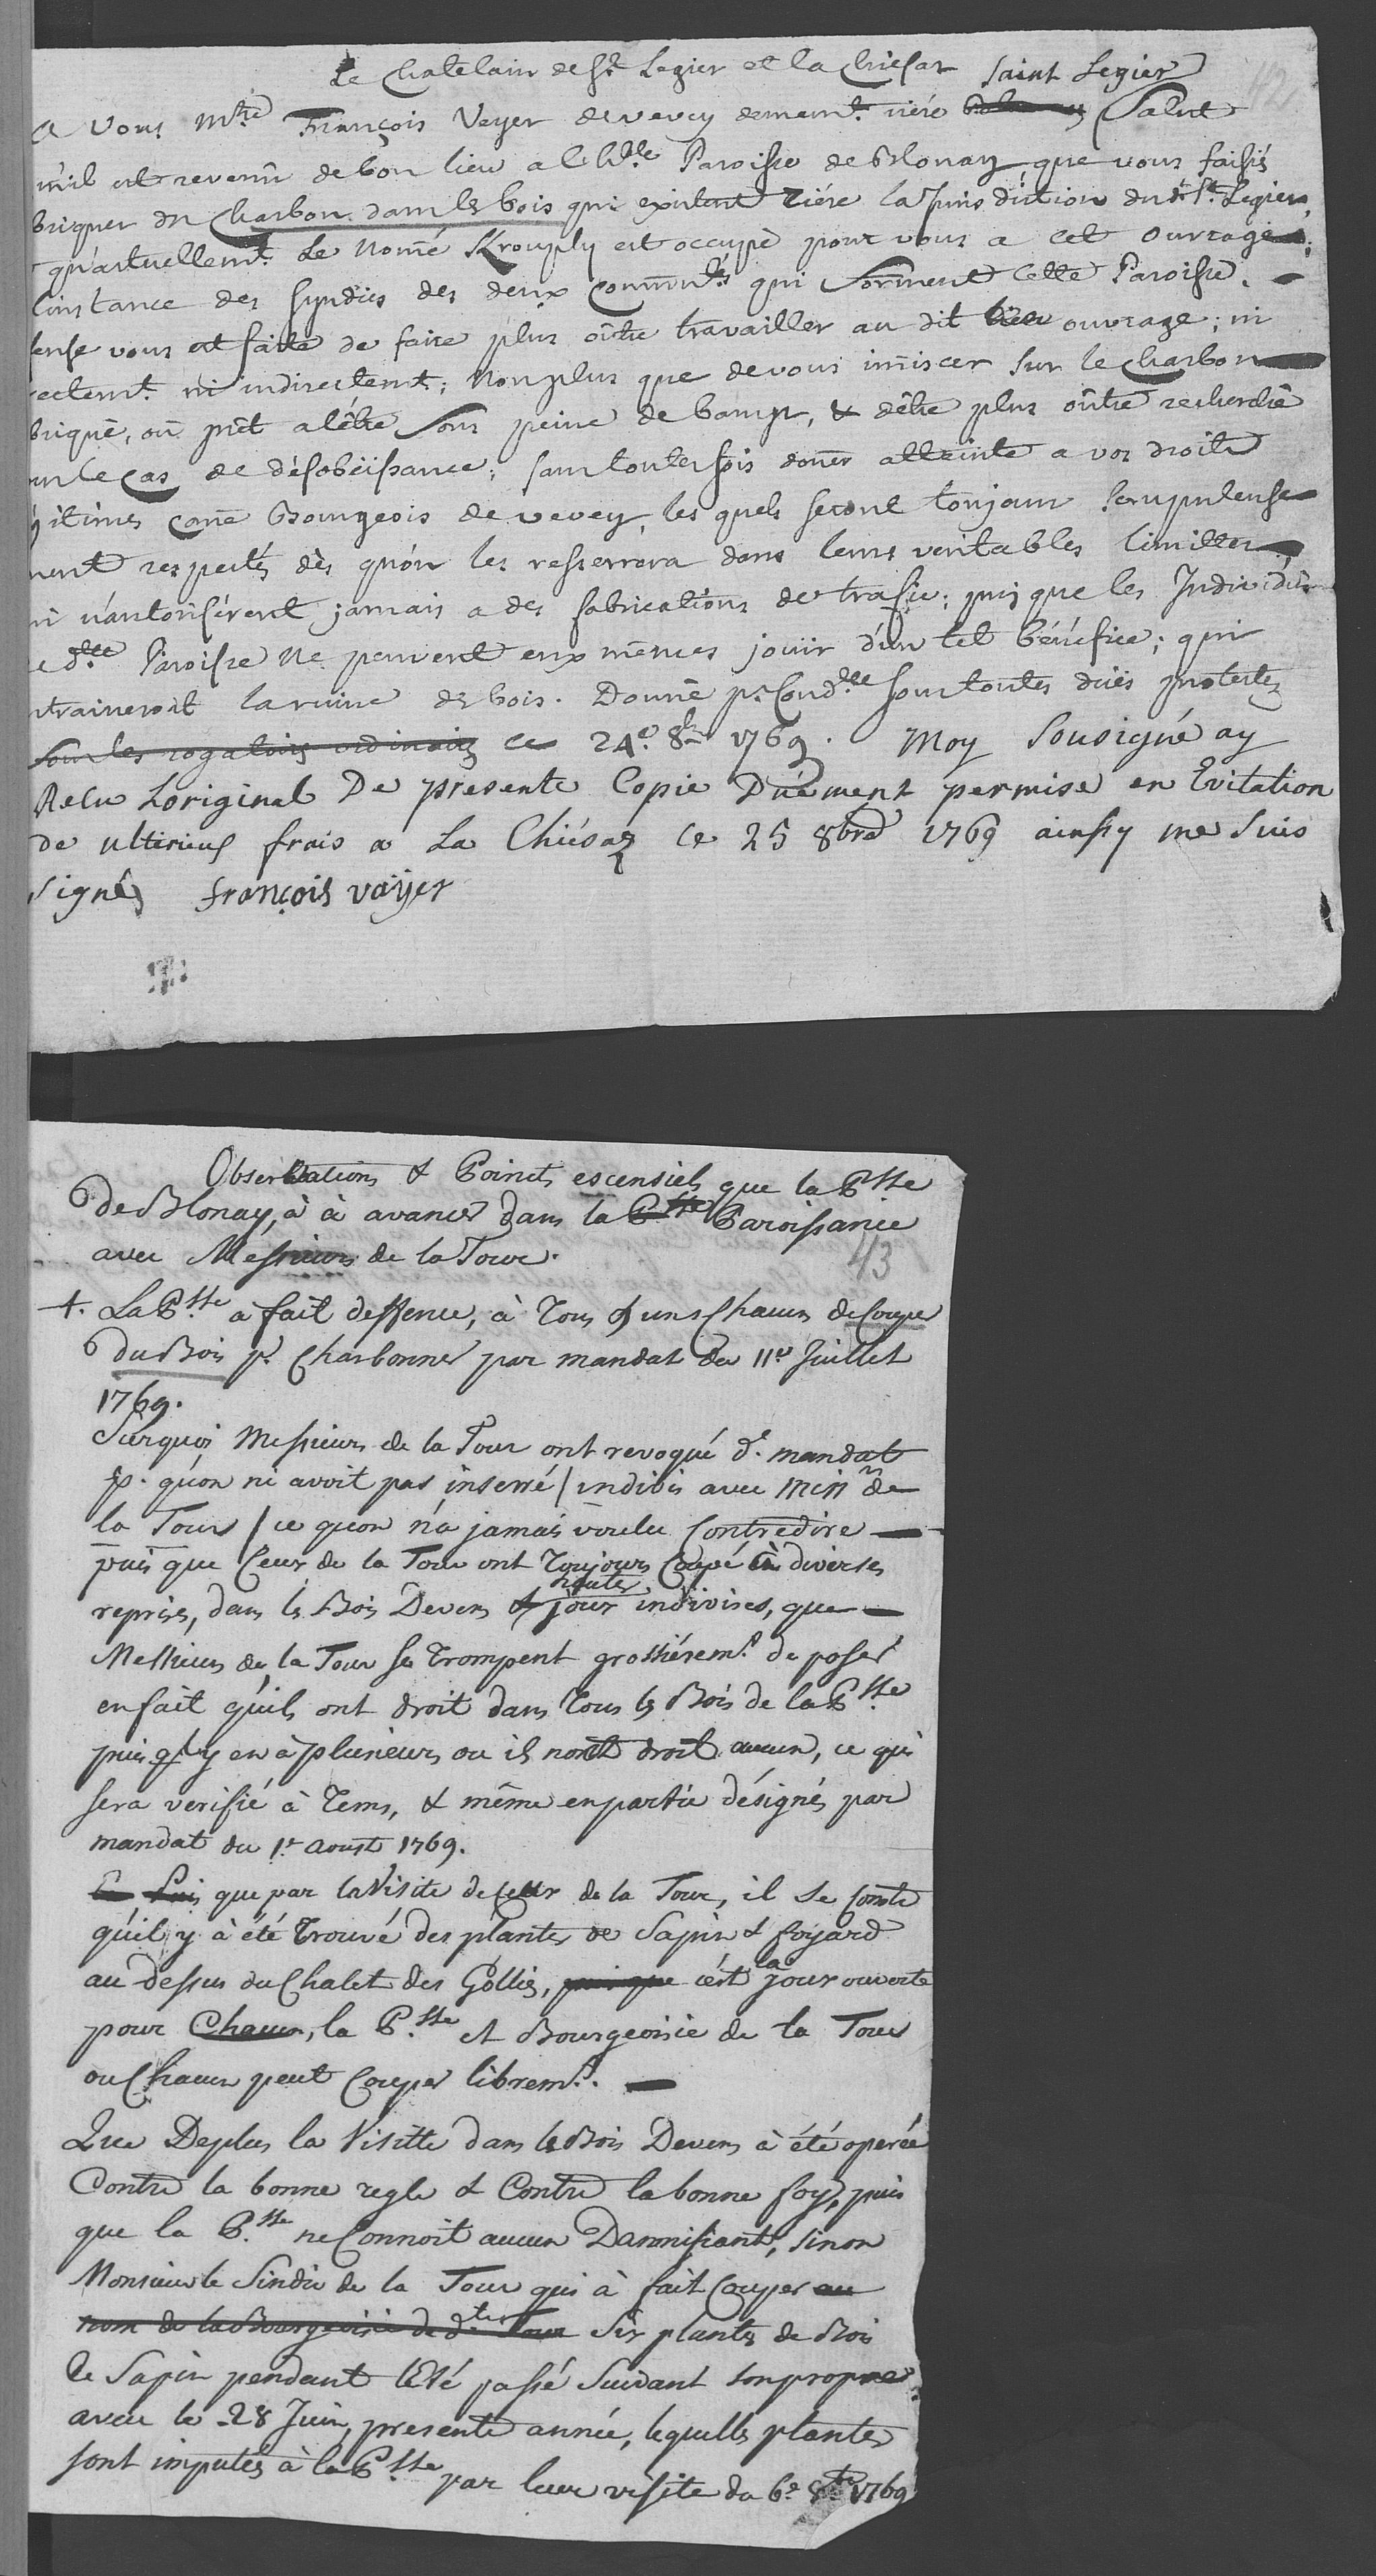 Le Chatelain de St Legier et la Chiesaz Saint Legier
42
A Vous Mtre François Vayer de vevey demeurt. riére Salut
m'il est revenû de bon lieu a l'hble Paroisse de Blonay, que vous faisiés
briquer du Charbon dans les bois qui existent riére la Jurisdiction du dt St. Legier,
qu'actuellemt. Le Nomé Krouply est occupé pour vous a cet ouvrage;
l'instance des syndics des deux Commtés qui forment cette Paroisse.
fense vous est faite de faire plus oûtre travailler au dit ouvrage; ni
rectemt. ni indirectemt; Non plus que de vous iñiscer sur le charbon
briqué, ou prêt a l'être sous peine de bamp, & d'être plus oûtre recherché
ur le cas de désobéissance; sans toutesfois doner atteinte a vos droits
gitimes come Bourgeois de vevey, les quels seront toujour scrupuleuse
ment respectés dès qu'on les resserrera dans leurs veritables limittes
ni n'autoriserent jamais a des fabrications de trafic; puis que les Individus
e dtte Paroisse Ne peuvent eux mêmes jouir d'un tel bénéfice; qui
ntraineroit la ruine des bois. Donné pr Condlle sous toutes dües protestes
sous les rogatoirs ordinaires ce 24e. 8bre 1769. Moy Sousigné ay
Relu Loriginal De presente Copie Duëment permise en Evitation
de ulterieus frais a La Chiésaz Ce 25 8bre 1769 ainssy me suis
signé François vayer
Observations & Points escensiels que la Psse
de Blonay, à à avancer dans la Psse Paroissance
avec Messieurs de la Tour.
43
1. La Psse. a fait deffence, à Tous & uns Chacun de Couper
du Bois pr. Charbonner par mandat du 11e Juillet
1769.
Surquoi Messieurs de la Tour ont revoqué dt. mandat
p. qu'on ni avoit pas inserré / indivis avec Miss rs de
la Tour / ce quon n'a jamais voulu Contredire
puis que Ceux de la Tour ont Toujours Coupé à diverses
reprises, dans les Bois Devens & toutes joux indivises, que
Messieurs de la Tour se Trompent grossiéremt. de poser
en fait qu'ils ont droit dans Tous les Bois de la Psse
puis qu'il y en à plusieurs ou ils n'ont droit aucun, ce qui
sera verifié à Tems, & même en partie désignés par
mandat du 1r Aoust 1769.
Puis que par la Visite de Ceux de la Tour, il se conste
qu'il y à été Trouvé des plantes de Sapin & foyard
au dessus du Chalet des Gollies, puis que c'est la joux ouverte
pour Chacun, la Psse et Bourgeoisie de la Tour
ou Chacun peut Couper libremt.
Que Deplus la Visitte dans les Bois Devens à été operée
Contre la bonne regle & Contre la bonne foy, puis
que la Psse ne Connoit aucun Damnifiant, sinon
Monsieur le Sindic de la Tour qui à fait Couper au
nom de la Bourgeoisie de dte Tour Six plantes de Bois
de Sapin pendant lEté passé Suivant son propre
aveu le 28 Juin, presente année, lequelles plantes
sont imputés à la Psse par leur visite du 6e 8bre 1769